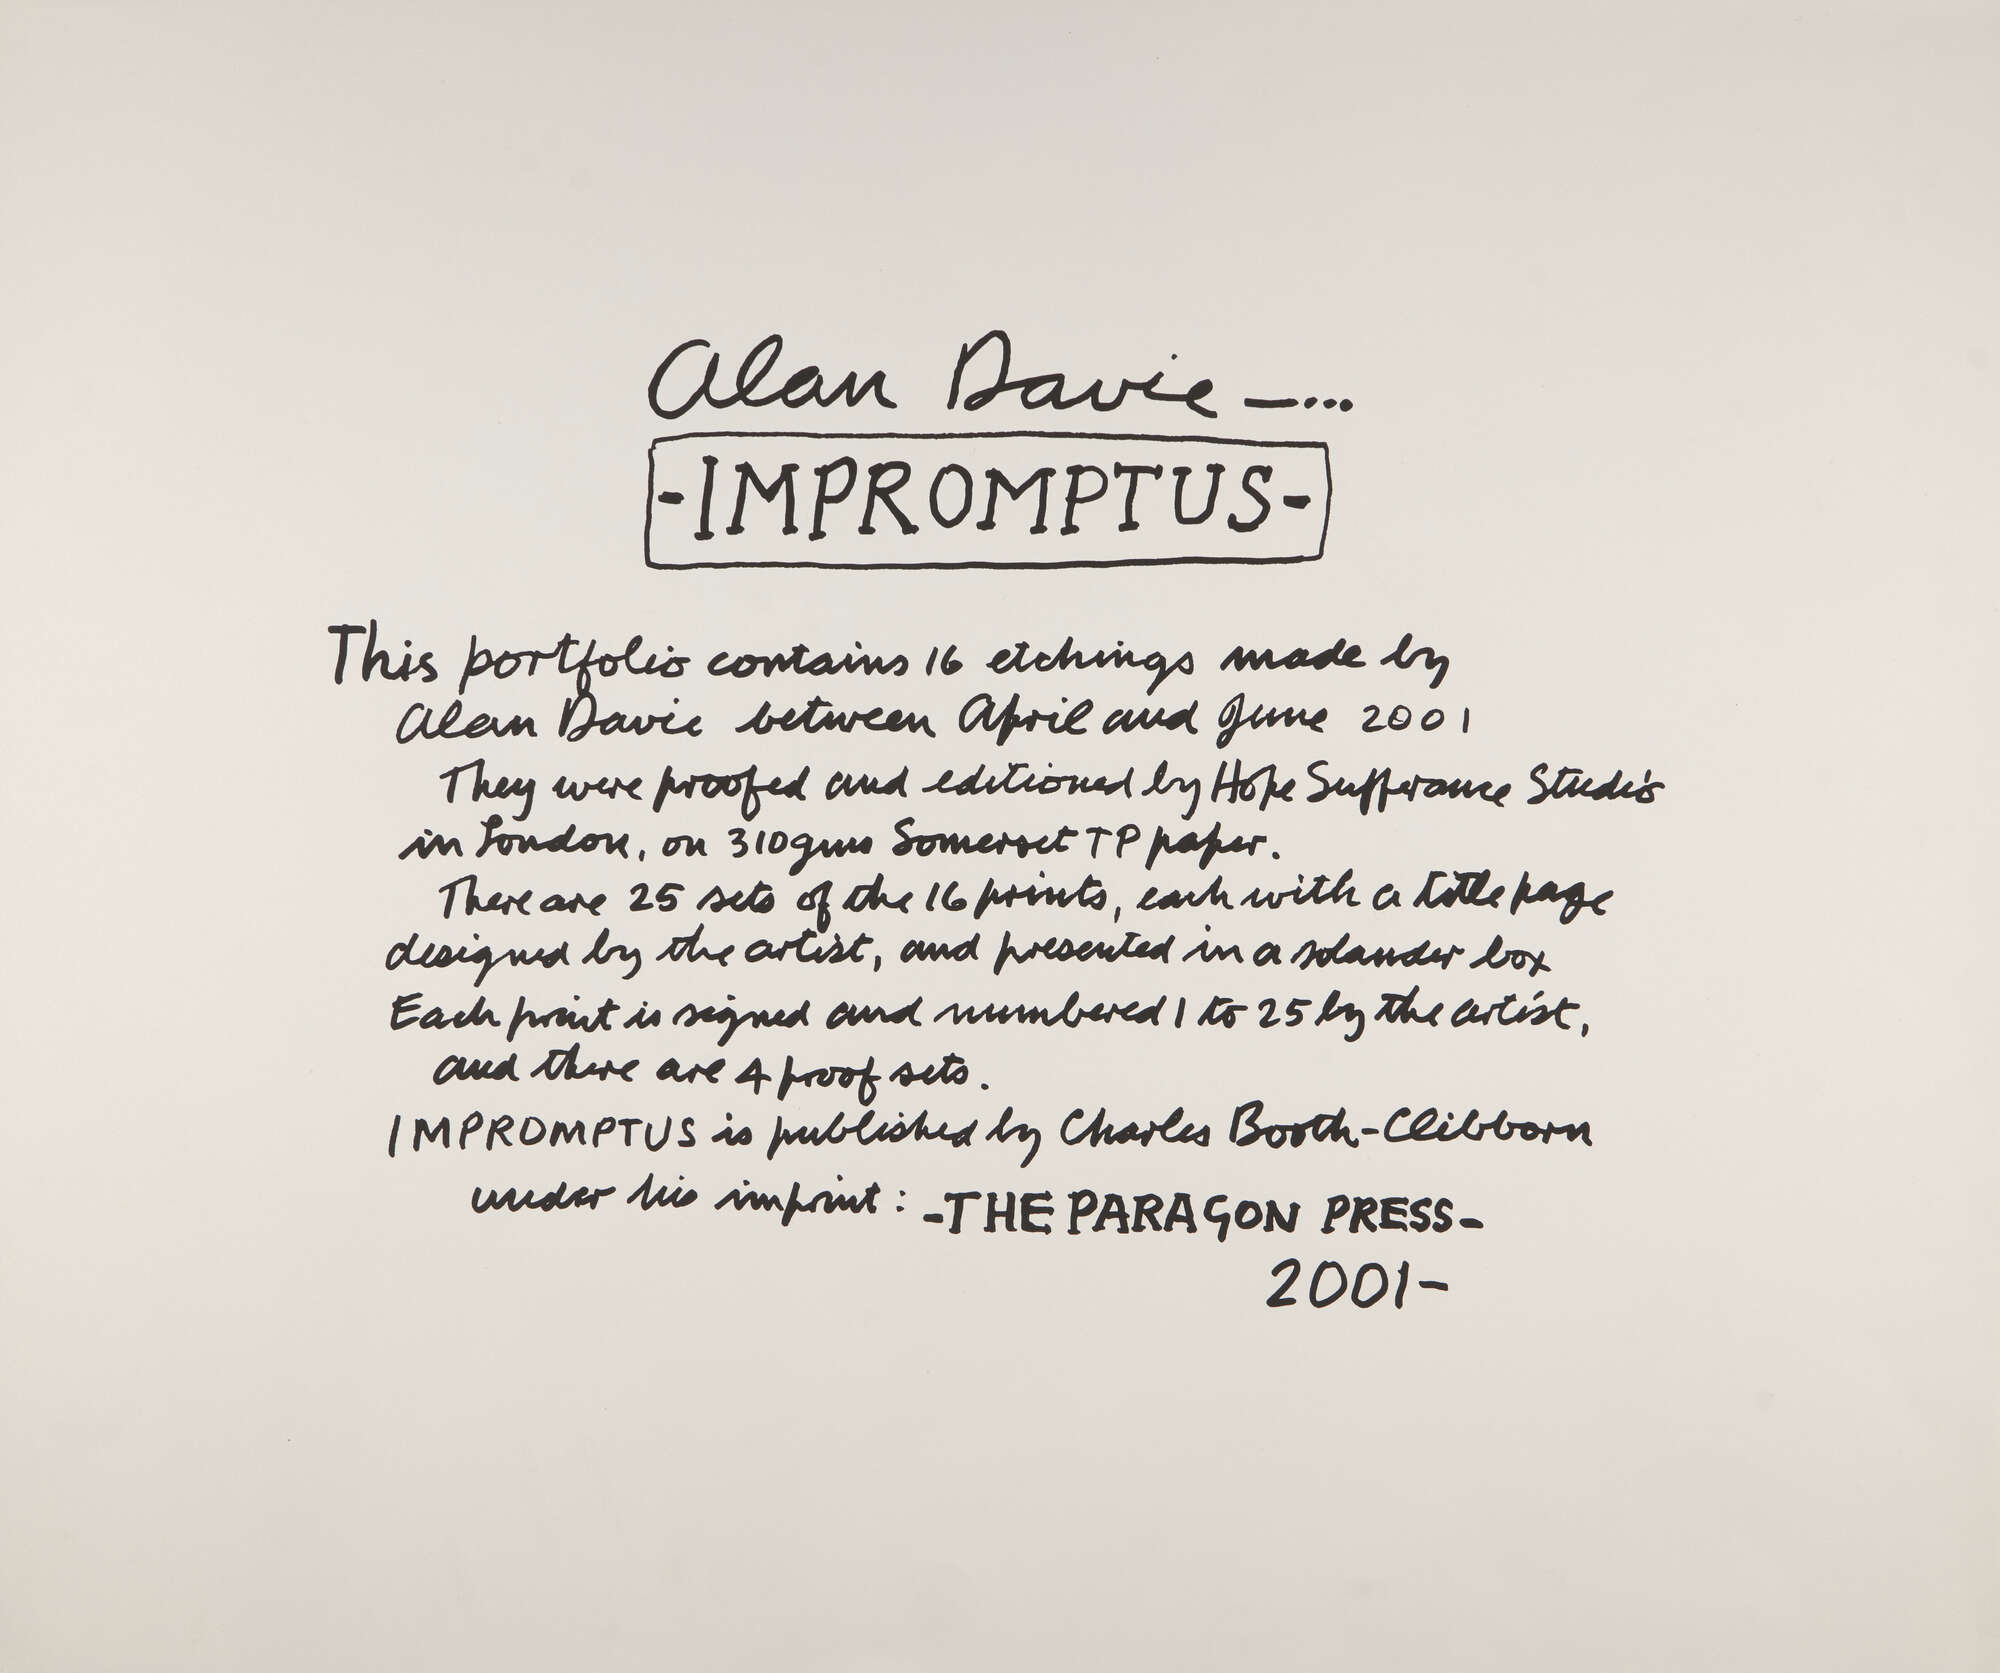 Alan Davie —...
-IMPROMPTUS-
This portfolio contains 16 etchings made by
Alan Davie between April and June 2001
They were proofed and editioned by Hope Sufferance Studio
in London, on 310gms Somerset TP paper.
There are 25 sets of the 16 prints, each with a title page
designed by the artist, and presented in a solander box
Each print is signed and numbered 1 to 25 by the artist,
and there are 4 proof sets.
IMPROMPTUS is published by Charles Booth-Clibborn
under his imprint: -THE PARAGON PRESS-
2001-